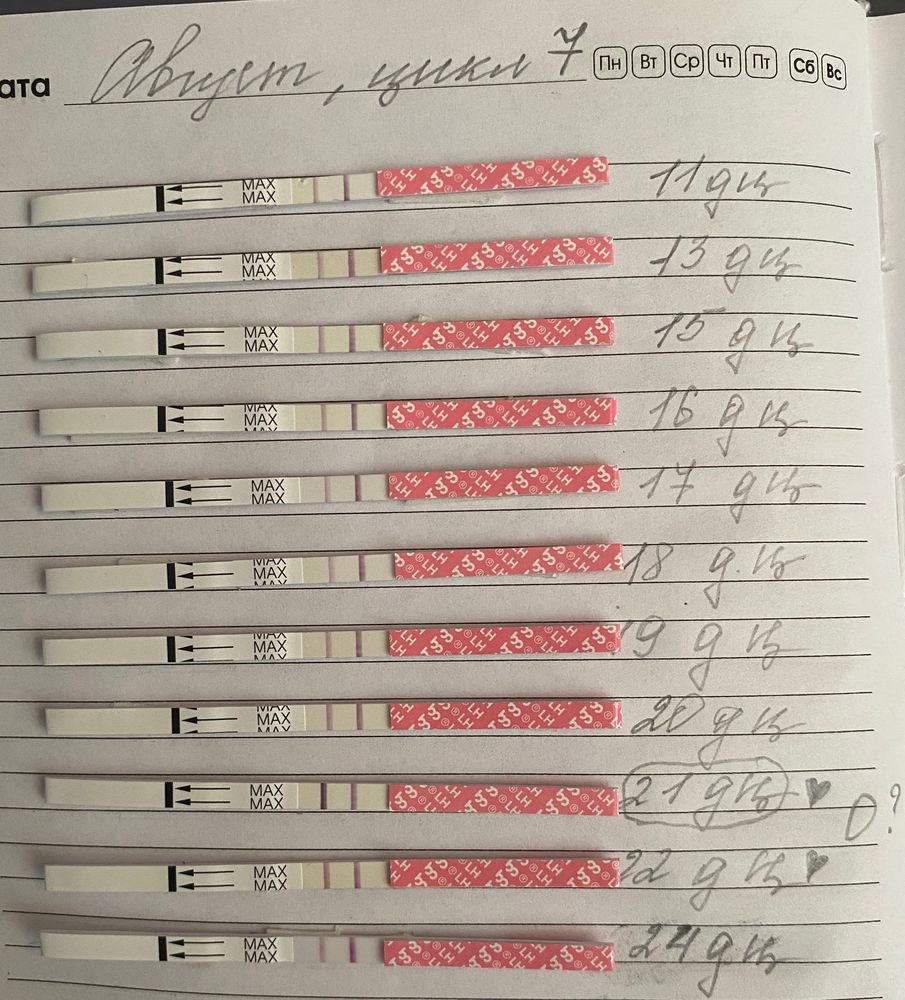 ата Август, цикл 7 Пн Вт Ср Чт Пт Сб Вс
MAX
MAX 11 дц
MAX
MAX 13 дц
MAX
MAX 15 дц
MAX
MAX
MAX 16 дц
MAX
MAX 17 дц
MAX
MAX
MAX 18 д.ц
MAX
MAX
MAX 19 д ц
MAX
MAX
MAX 20 дц
MAX
MAX 21 дц ♥
О?
MAX
MAX 22 дц ♥
MAX
MAX 24 дц